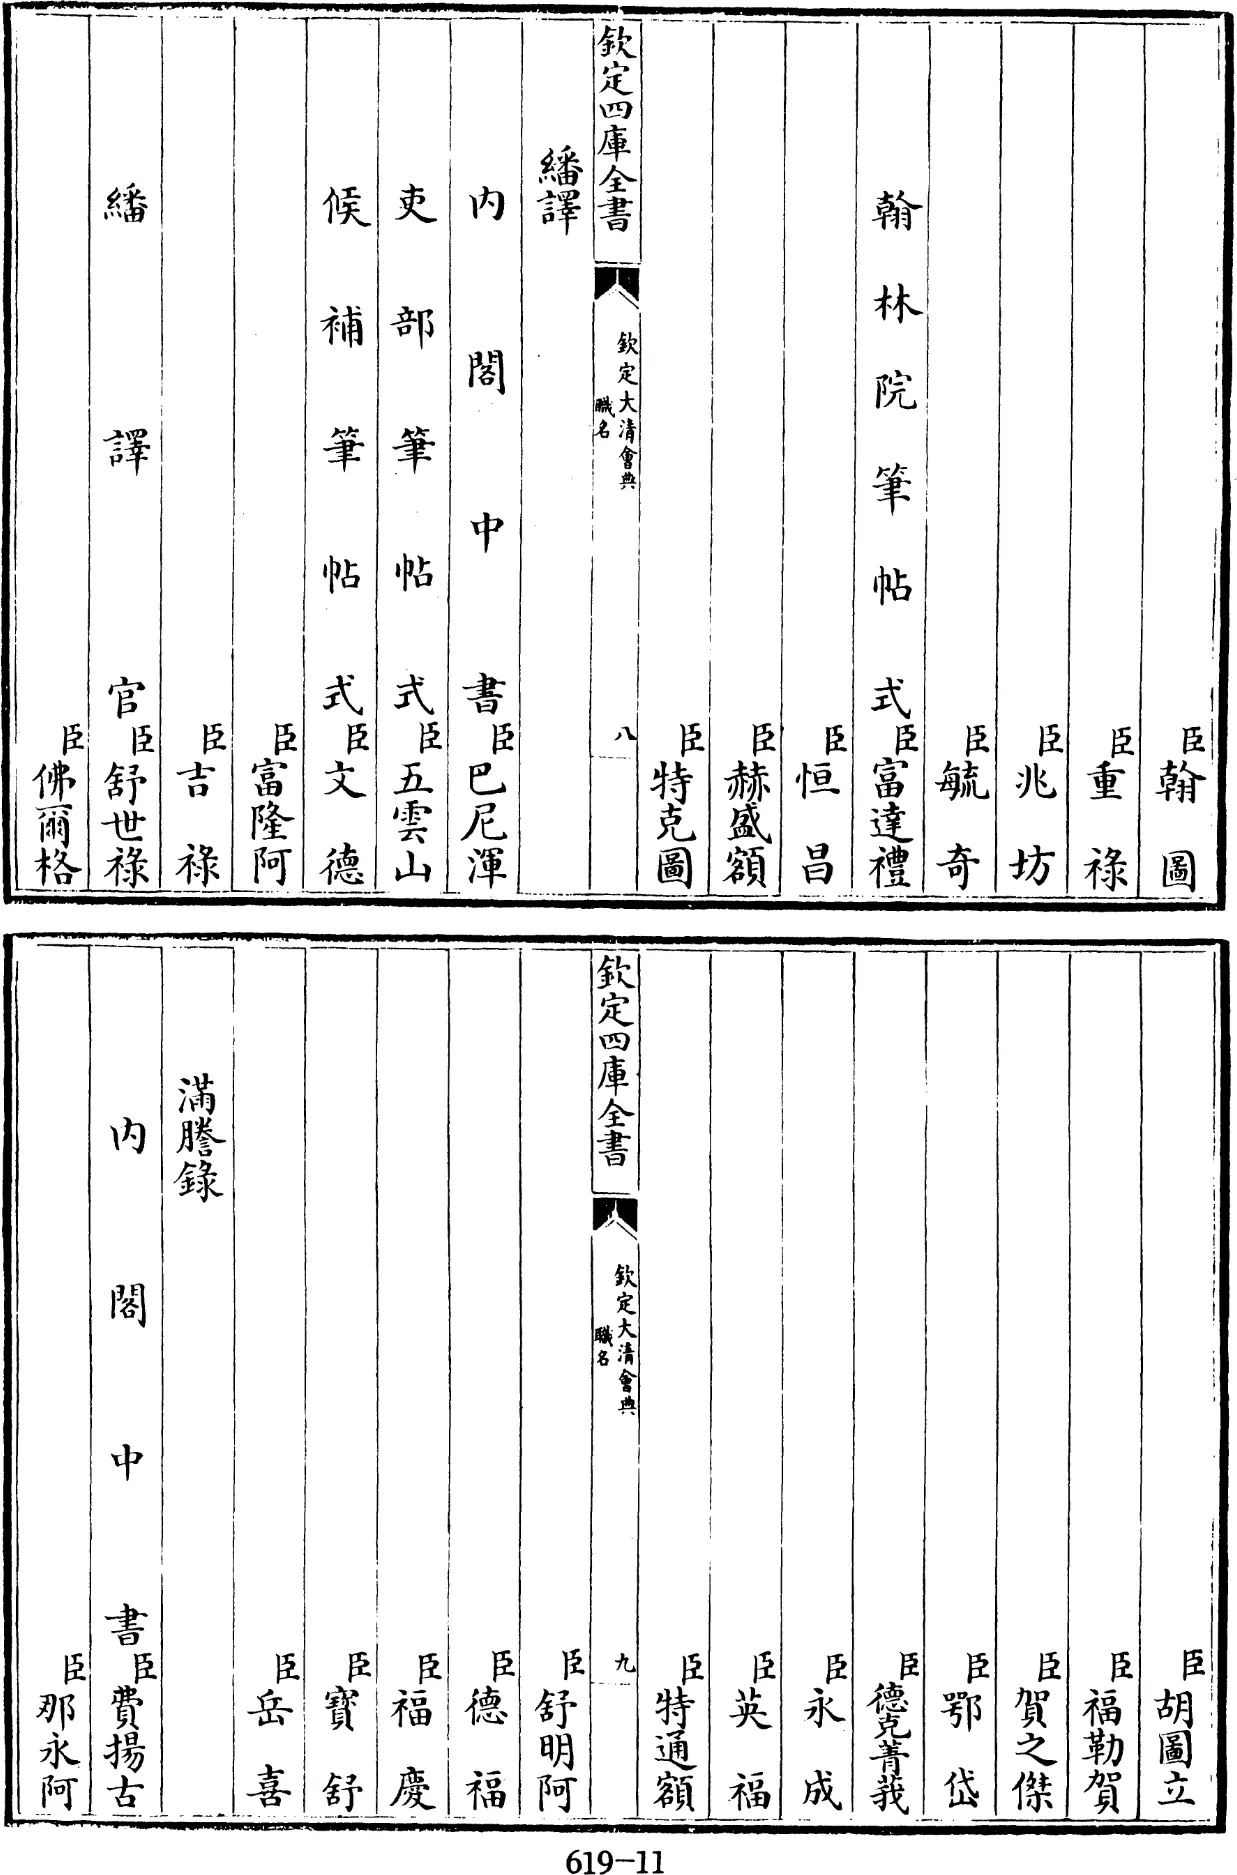 臣翰圖
臣重祿
臣兆坊
臣毓奇
翰林院筆帖式臣富達禮
臣恒昌
臣赫盛額
臣特克圖
欽定四庫全書
欽定大清會典
職名
八
繙譯
內閣中書臣巴尼渾
吏部筆帖式臣五雲山
候補筆帖式臣文德
臣富隆阿
臣吉祿
繙譯官臣舒世祿
臣佛爾格
臣胡圖立
臣福勒賀
臣賀之傑
臣鄂岱
臣德克菁莪
臣永成
臣英福
臣特通額
欽定四庫全書
欽定大清會典
職名
九
臣舒明阿
臣德福
臣福慶
臣寶舒
臣岳喜
滿謄錄
內閣中書臣費揚古
臣那永阿
619-11